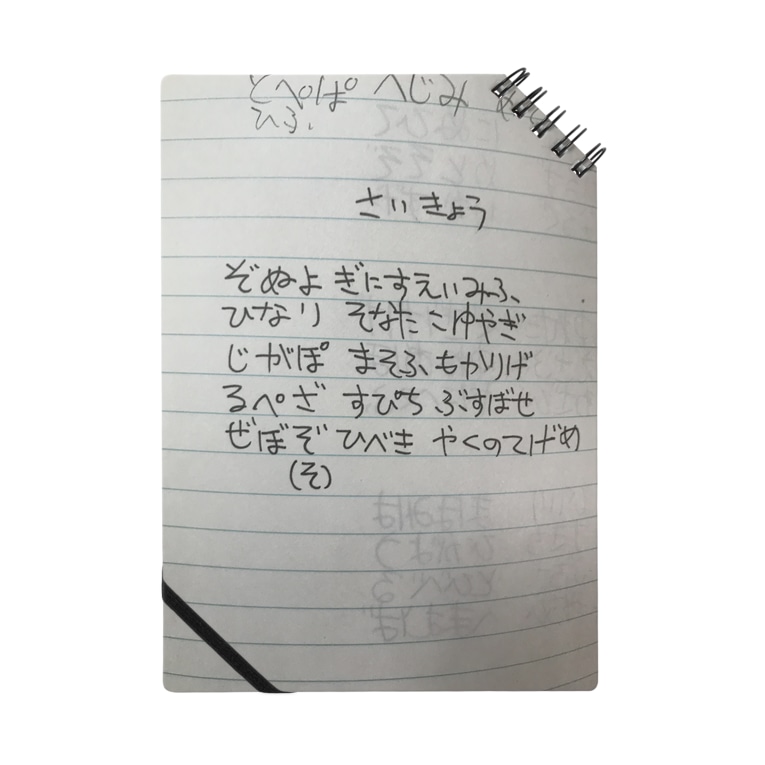 とぺぱ へじみ
ひふ、
さいきょう
ぞぬよ ぎにすえいみふ、
ひなり そなた こゆやぎ
じがぽ まそふ、もかりげ
るぺざ すぴち ぶすぼせ
ぜぼぞ ひべき やくのてげめ
(そ)